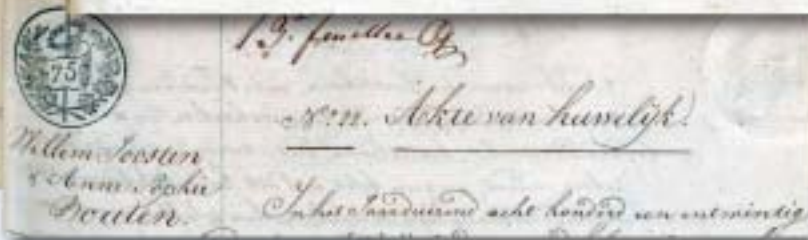 75
feuillet
N° 22. Akte van huwelijk.
Willem Joosten
& Anna Sophia
Bouten.
In het Jaar duizend acht honderd een en twintig